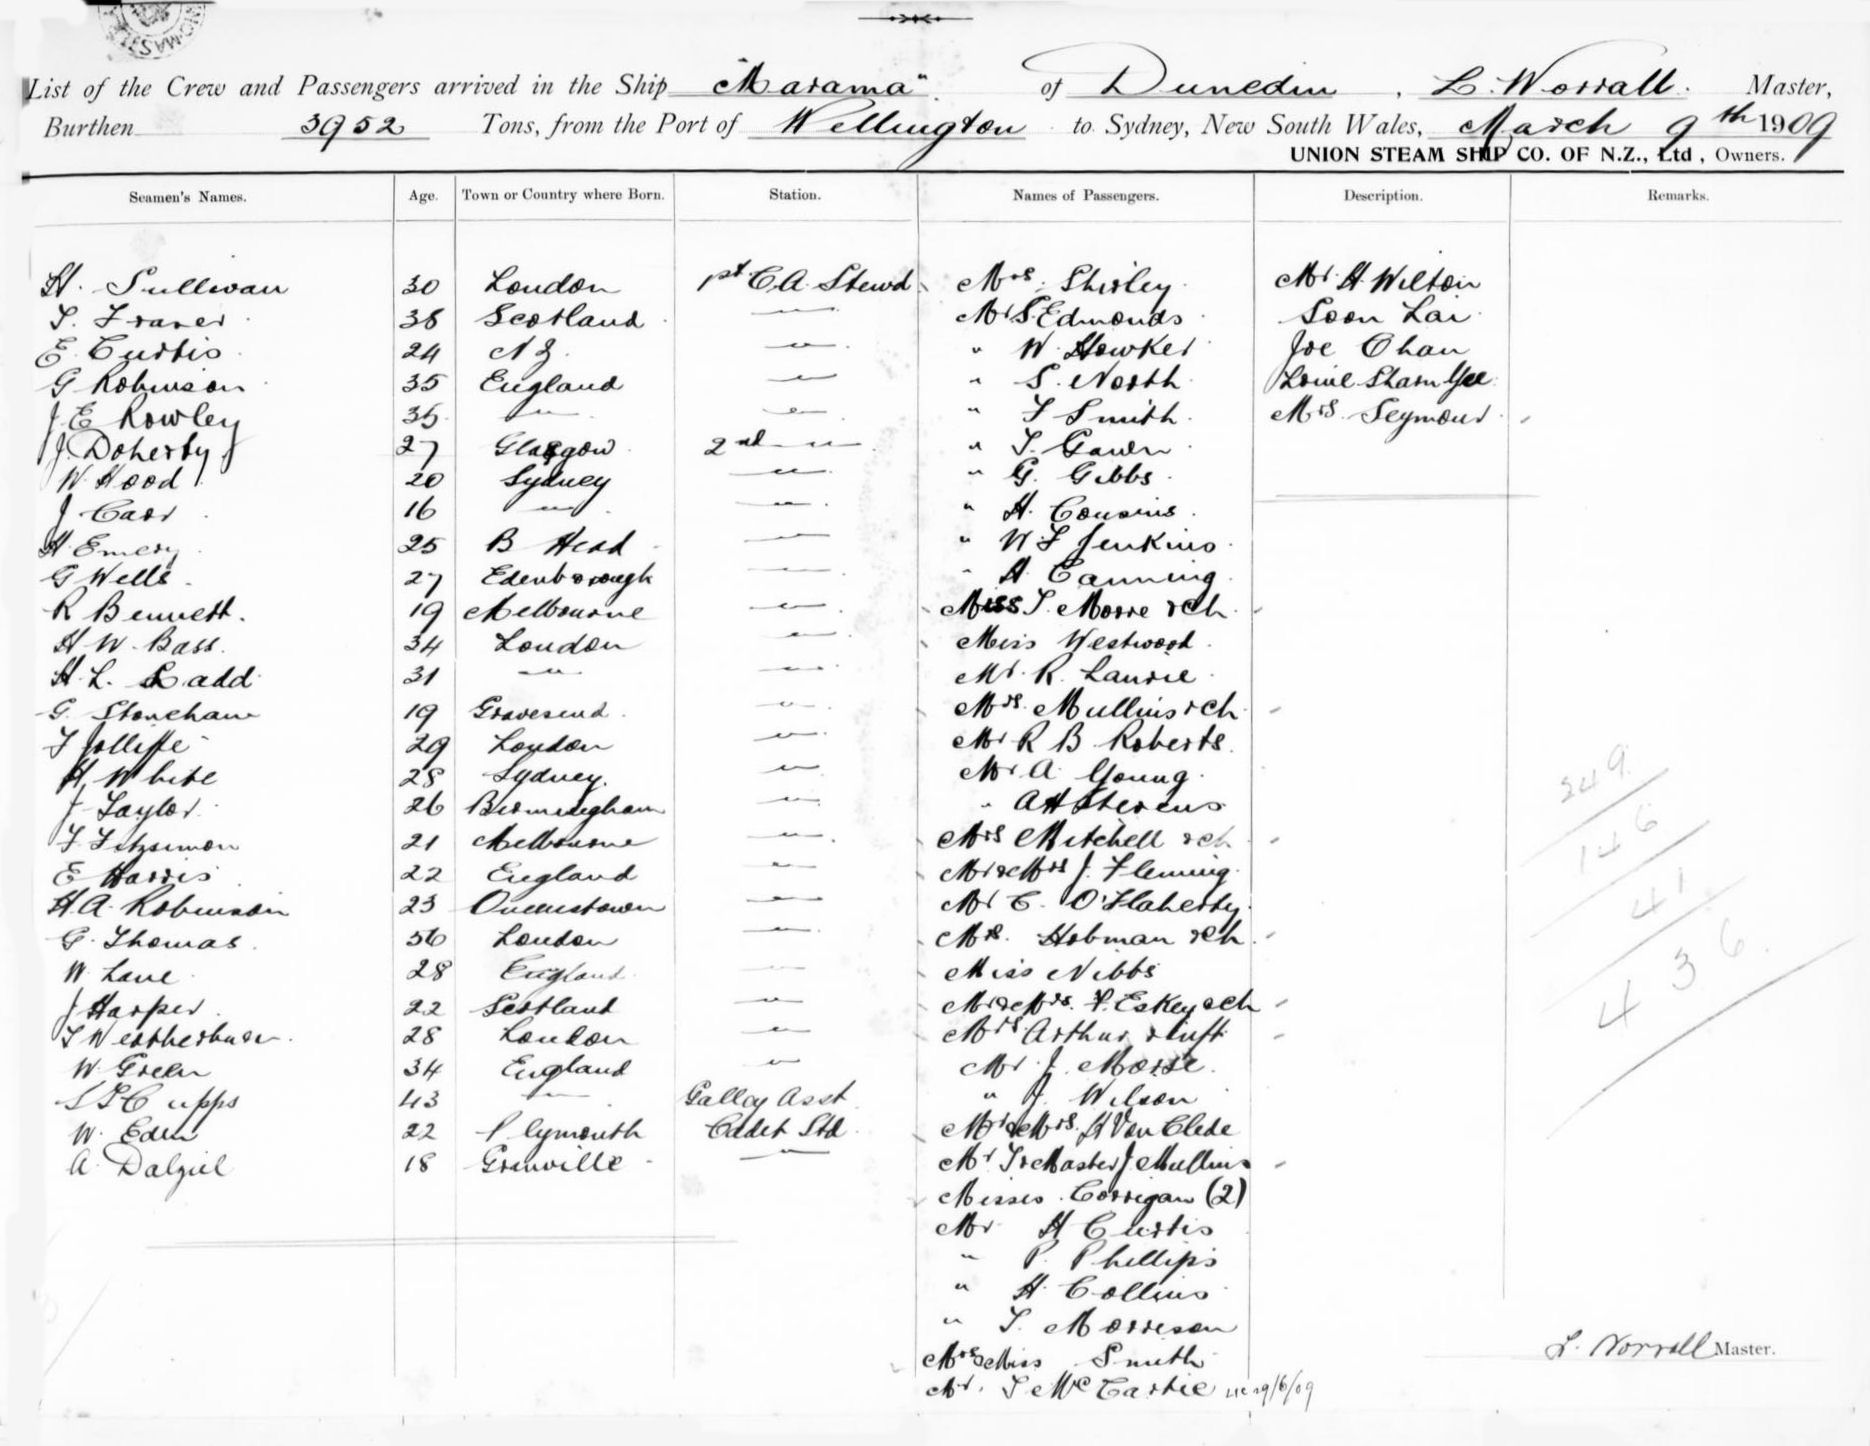 List of the Crew and Passengers arrived in the Ship "Marama" of Dunedin, L. Worrall. Master,
Burthen 3952 Tons, from the Port of Wellington to Sydney, New South Wales, March 9th 1909
UNION STEAM SHIP CO. OF N.Z., Ltd, Owners.
Seamen's Names. Age. Town or Country where Born. Station. Names of Passengers. Description. Remarks.
H. Sullivan 30 London 1st C.A. Stewd Mrs. Shirley Mr. H Wilton
T. Fraser 38 Scotland " Mr S Edmonds Soon Lai
E. Curtis 24 N Z. " " W. Hawker Joe Chan
G Robinson 35 England " " S. North Yee
J E Rowley 35 " " " F Smith Mrs. Seymour
J. Doherty 27 Glasgow 2nd " " T.
W. Hood 20 Sydney " " G. Gibbs
J Carr 16 " " " H. Cousins
H. Emery 25 B Head " " W. F Jenkins
G Wells 27 Edenborough " " H Canning
R Bennett. 19 Melbourne " Miss T. Moore & ch
H W. Bass 34 London " Miss Westwood
H. L. Ladd 31 " " Mr. R. Laurie
G. Stoneham 19 Gravesend " Mrs. Mullins & ch
F Jolliffe 29 London " Mr R B Roberts
H White 28 Sydney. " Mr A Young
J Taylor 26 Birmingham " " A H Stevens
F. Fitzsimon 21 Melbourne " Mrs Mitchell & ch
E Harris 22 England " Mr & Mrs J. Fleming
H. A. Robinson 23 Queenstown " Mr C. O'Flaherty
G. Thomas 56 London " Mrs. Hobman & ch
W. Lane 28 England " Miss Nibbs
J Harper 22 Scotland " Mr & Mrs. Eskey & ch
28 London " Mrs Arthur & inft
W. Green 34 England " Mr. J. Morse
Cupps 43 " Galley Asst " J. Wilson
W. Eden 22 Plymouth Cadet Std Mr & Mrs. H Van Clede
A. Dalziel 18 Granville " Mr T & Master J Mullins
Misses Corrigan (2)
Mr H Curtis
" P. Phillips
" H. Collins
" T. Morrison
Mrs & Miss Smith
Mr. T McCartie 29/6/09
249
146
41
436
L. Worrall Master.